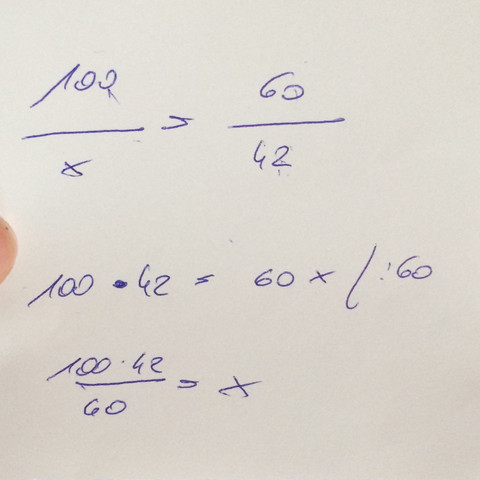 100/x = 60/42
100 · 42 = 60 x /:60
100·42/60 = x